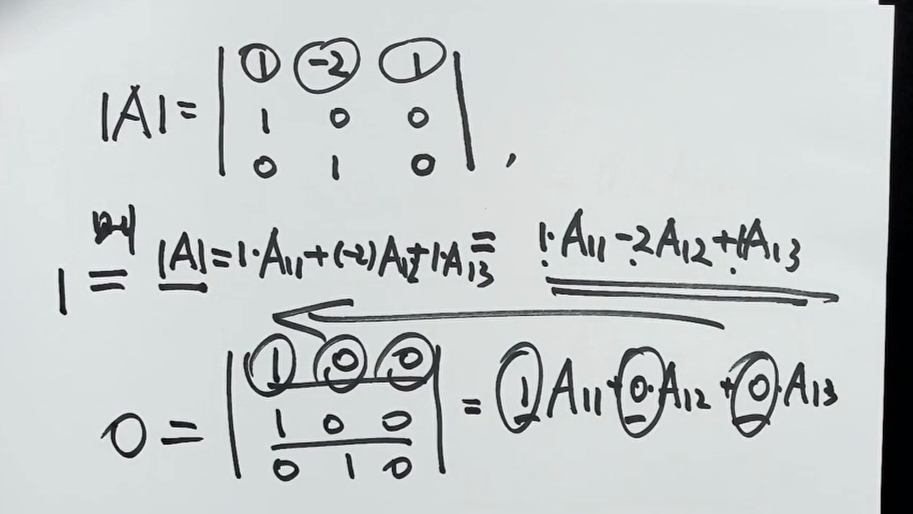 |A| = | 1 -2 1 |
| 1 0 0 |
| 0 1 0 | ,
1 = |A| = 1·A₁₁ + (-2)A₁₂ + 1·A₁₃ = 1·A₁₁ - 2A₁₂ + 1A₁₃
0 = | 1 0 0 | = 1A₁₁ + 0·A₁₂ + 0·A₁₃
| 1 0 0 |
| 0 1 0 |